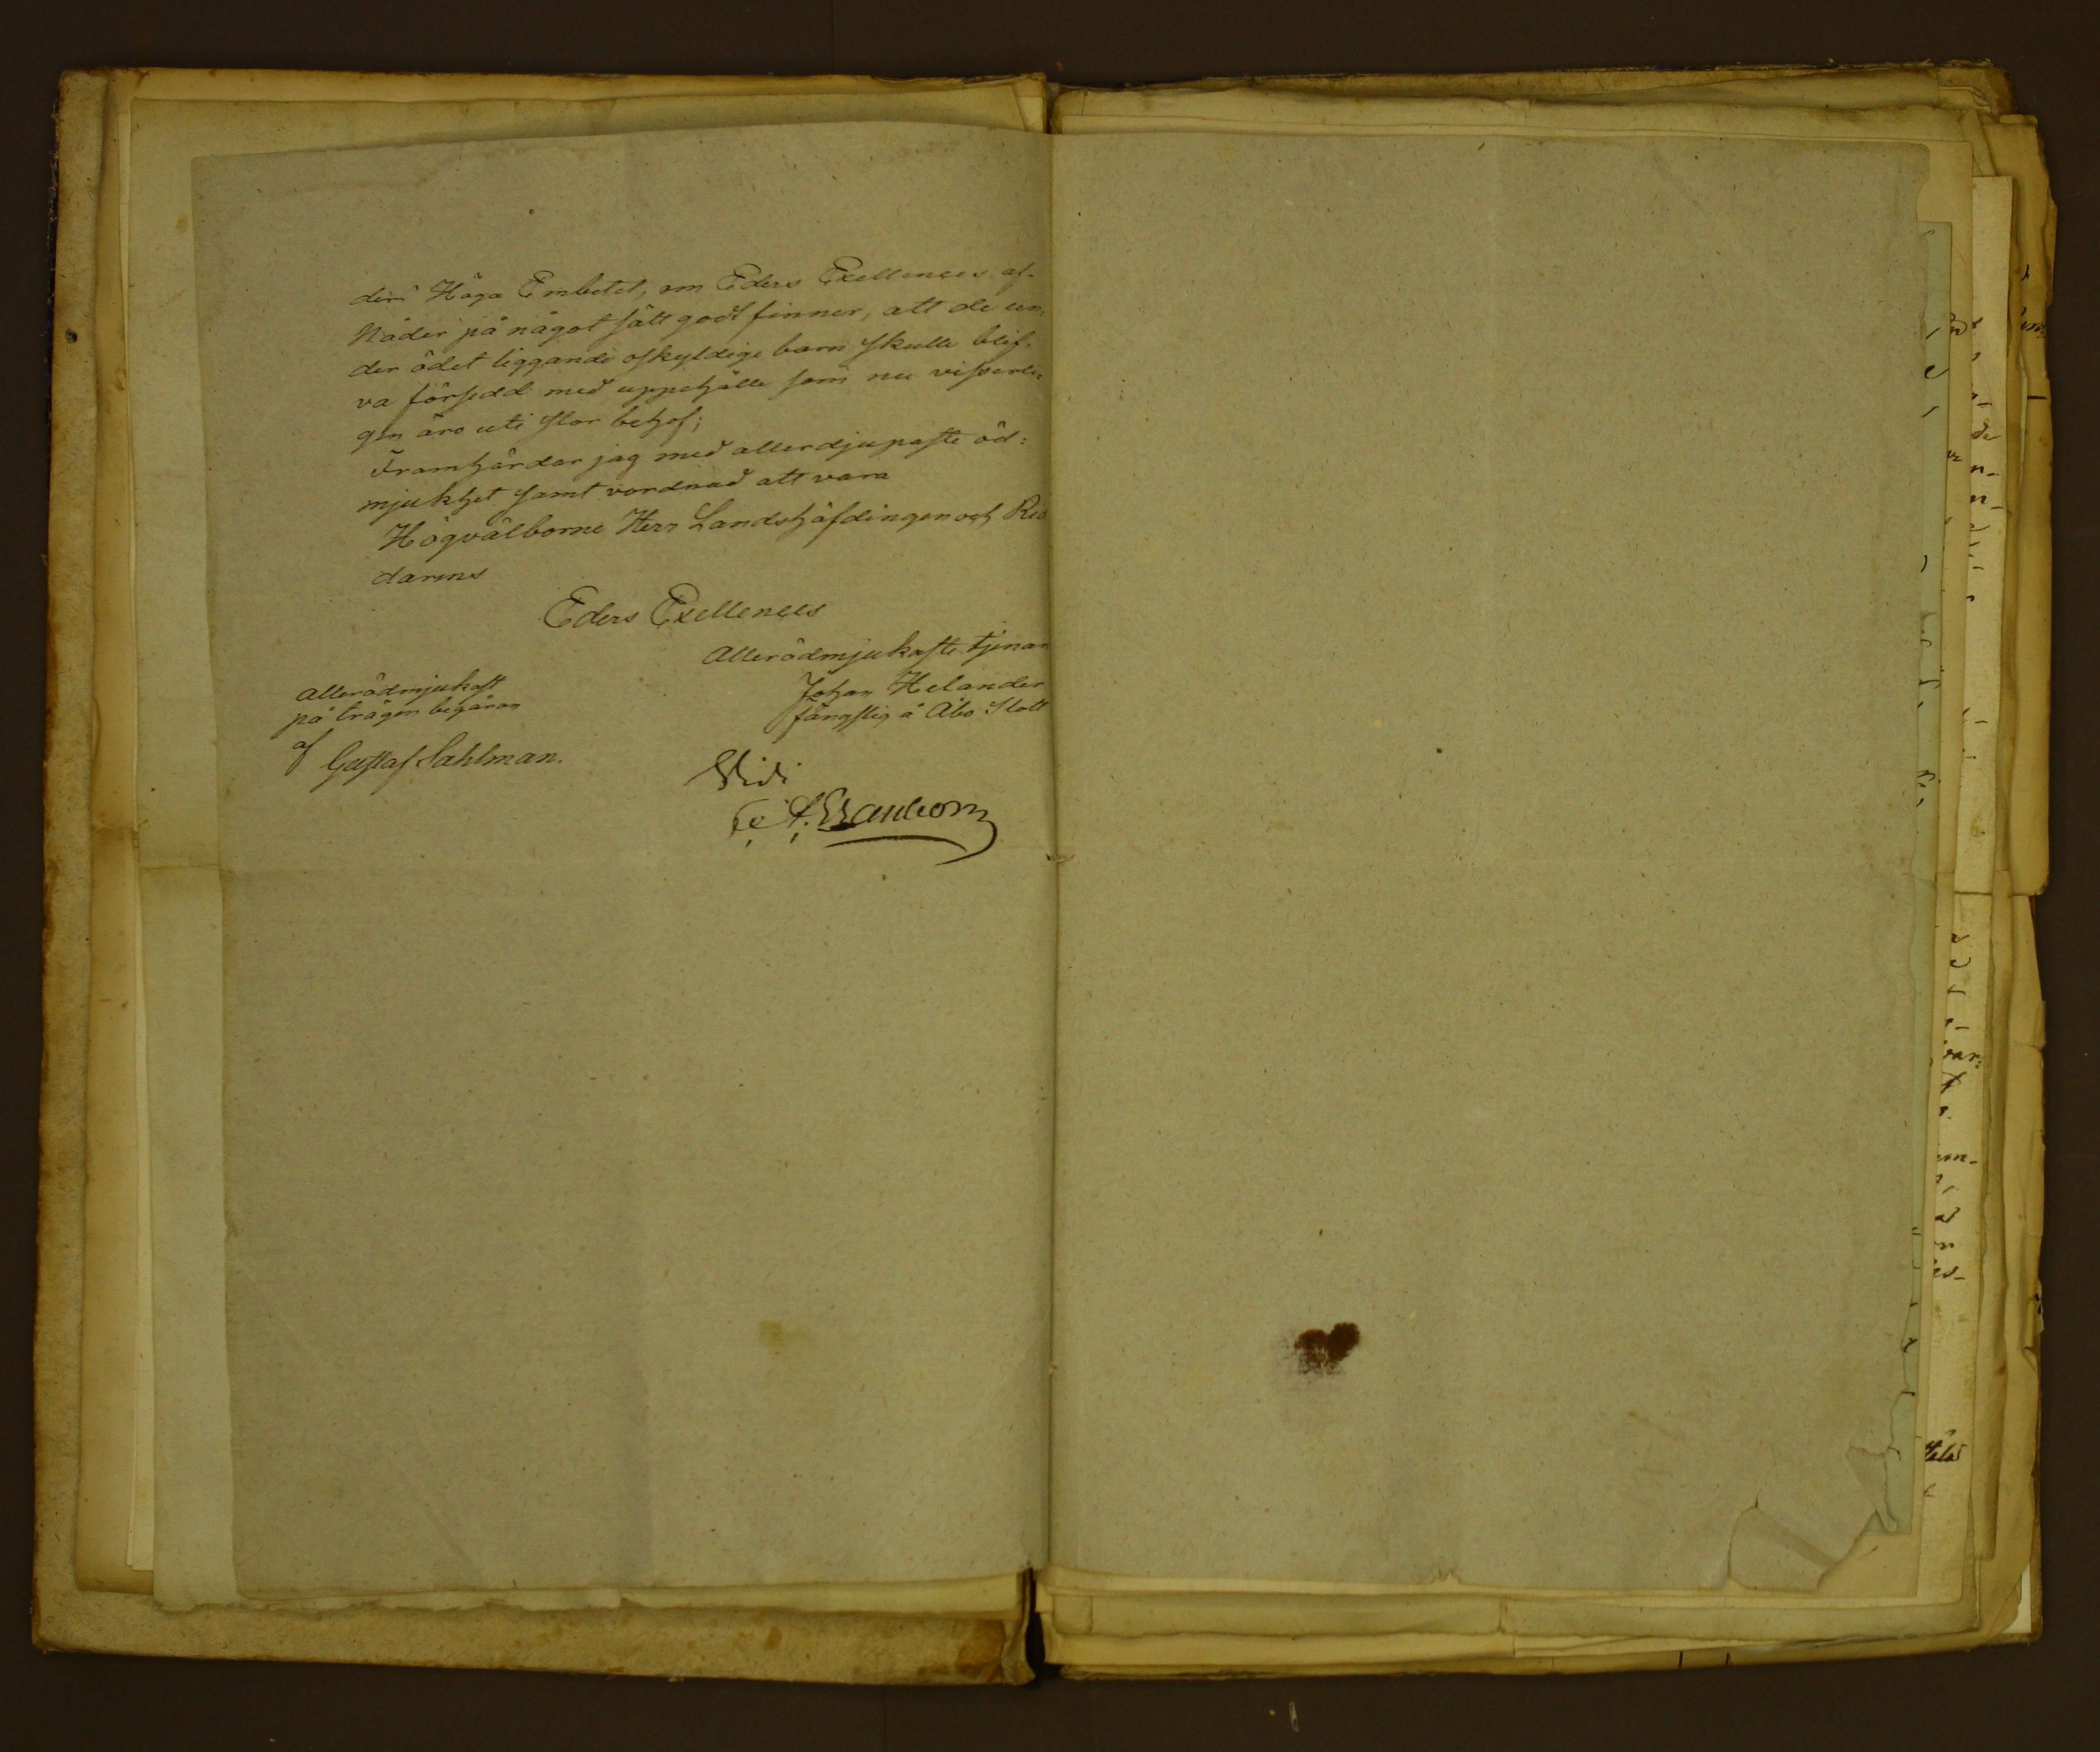 deri Höga Embetet, om Eders Exellences af-
Nåder på något sätt godt finner, att de un-
der ödet liggande oskyldige barn skulle blif-
va försedd med uppehälle som nu visserli-
gen äro uti stor behof;
Framhärdar jag med allerdjupaste öd=
mjukhet samt vordnad att vara
Högvälborne Herr Landshöfdingen och Rid
darens
Eders Exellences
Allerödmjukaste tjenar
Johan Helander
fängslig å Åbo Slott
allerödmjukast
på trägen begäran
af Gustaf Sahlman.
Vidi